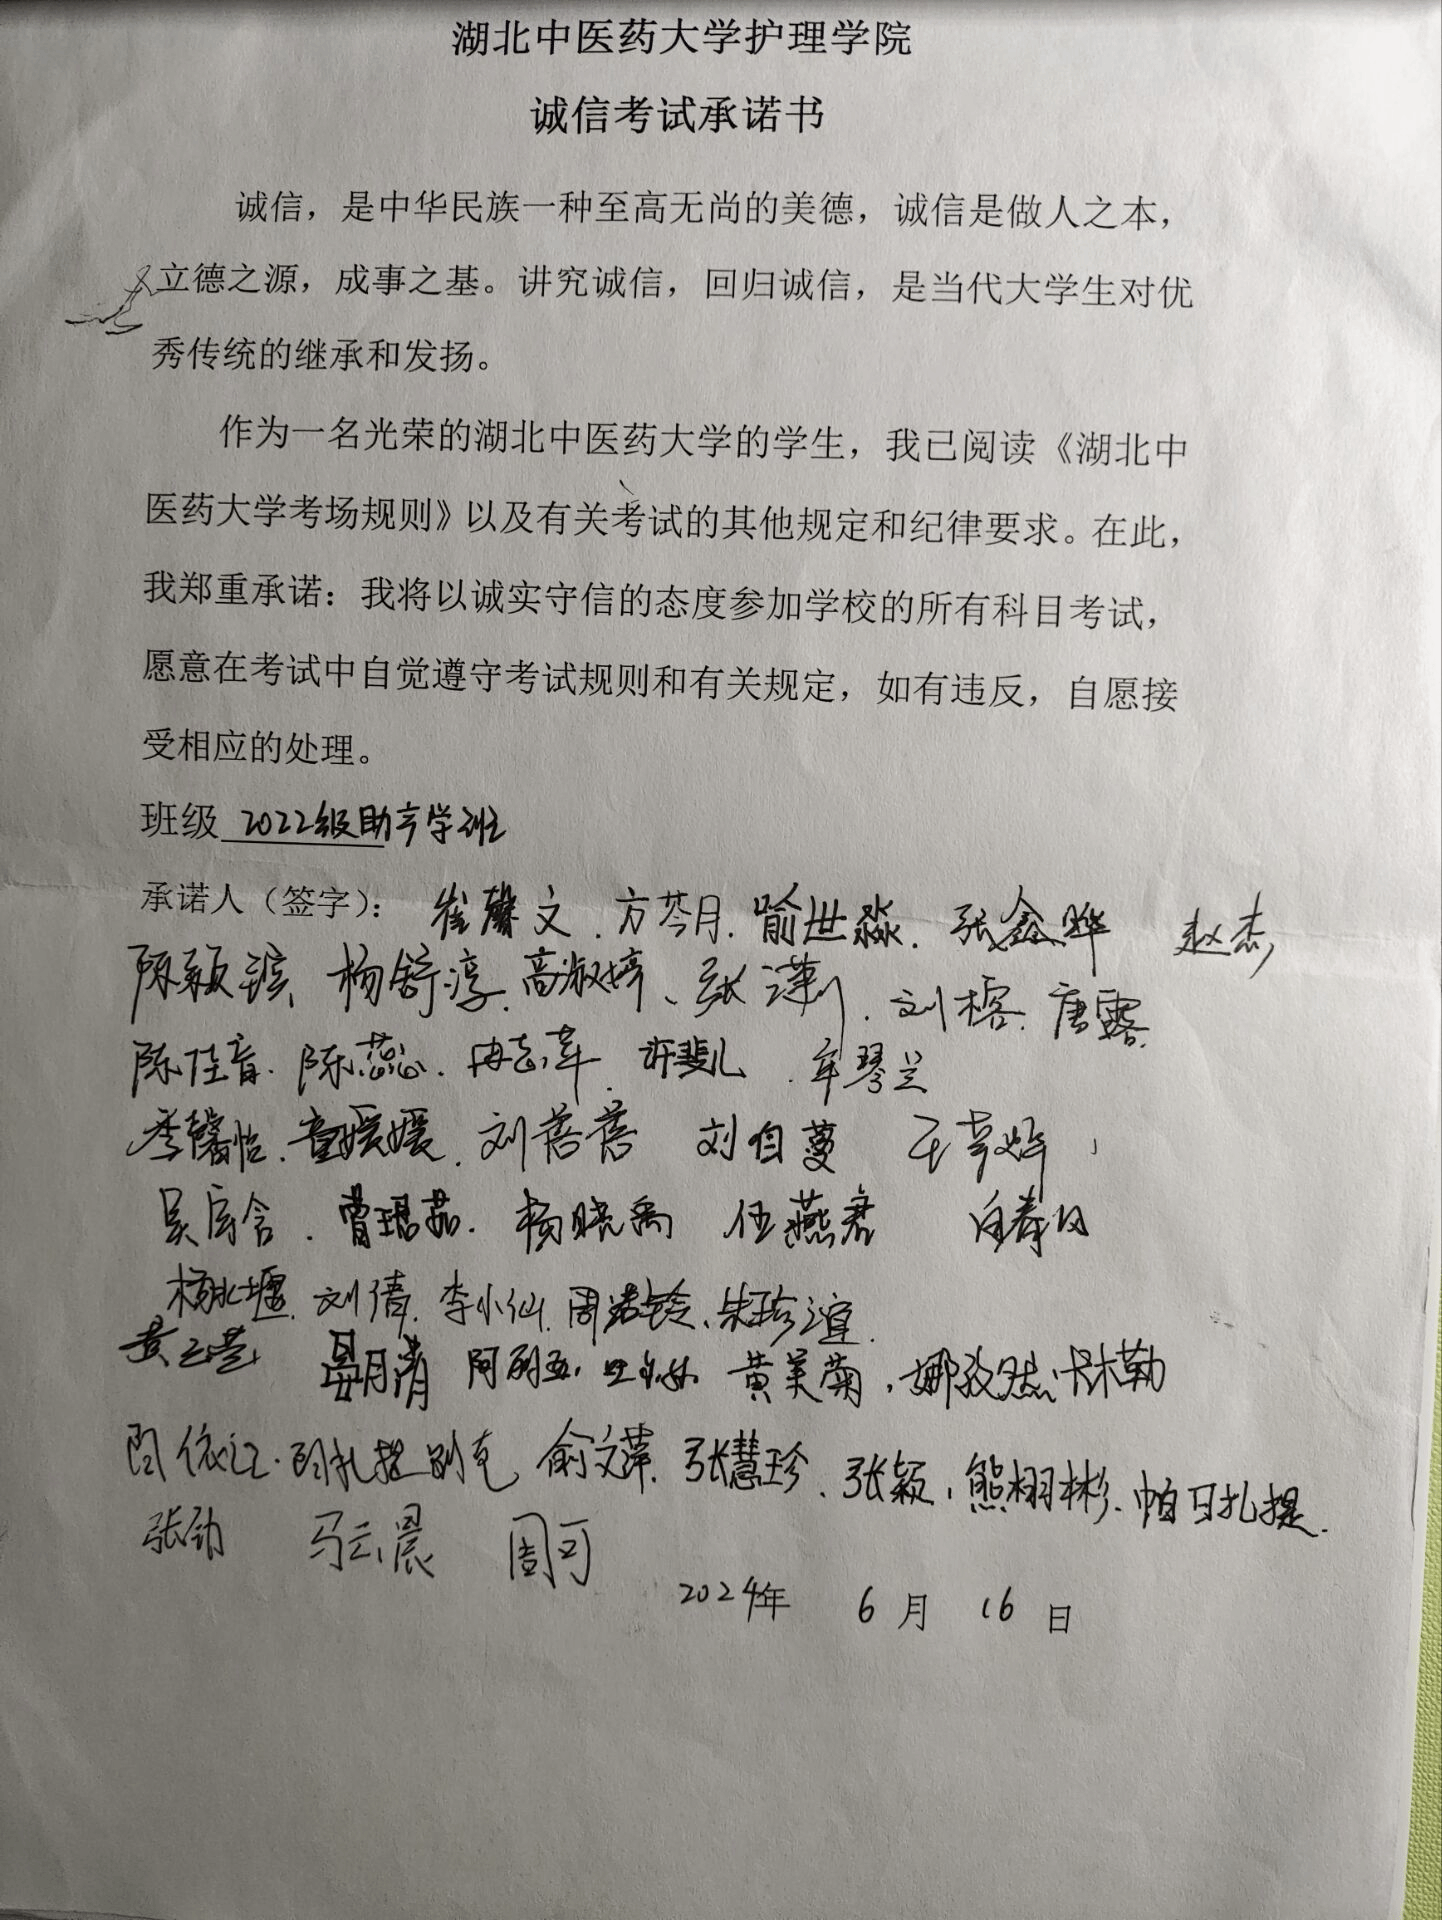 湖北中医药大学护理学院
诚信考试承诺书
诚信，是中华民族一种至高无尚的美德，诚信是做人之本，
立德之源，成事之基。讲究诚信，回归诚信，是当代大学生对优
秀传统的继承和发扬。
作为一名光荣的湖北中医药大学的学生，我已阅读《湖北中
医药大学考场规则》以及有关考试的其他规定和纪律要求。在此，
我郑重承诺：我将以诚实守信的态度参加学校的所有科目考试，
愿意在考试中自觉遵守考试规则和有关规定，如有违反，自愿接
受相应的处理。
班级 2022级助产学班
承诺人（签字）： 崔馨文、方芩月、喻世淼、张鑫晔 赵杰
杨舒淳、高淑婷、张潇、刘榕、唐露
陈佳音、陈蕊、冉志萍、许斐儿、牟琴兰
李馨怡、童媛媛、刘蓓蓓 刘自蔓
杨晓禹 伍燕君
刘倩、李小仙、周洁铃、朱珍谊
黄美菊、娜孜然·卡木勒
俞文萍、张慧珍、张颖、熊栩彬、帕日扎提
张勋 马云晨 周可
2024年 6月 16日